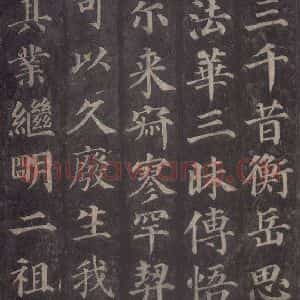 三千昔衡岳思
法華三昧傳悟
尔来寂寥罕契
可以久廢生我
其業繼明二祖